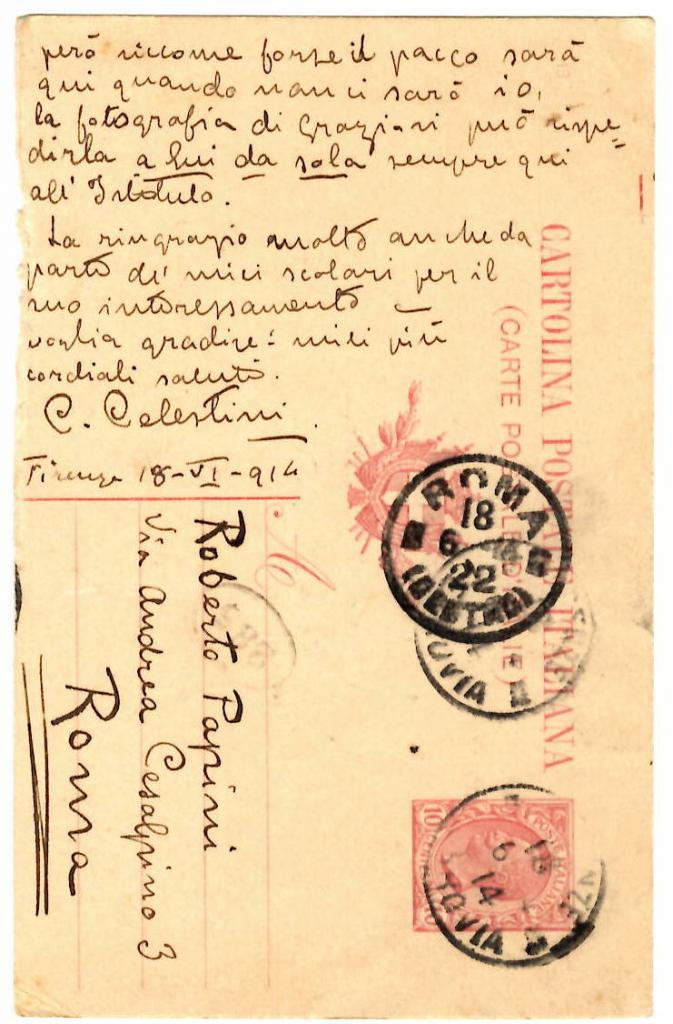 però siccome forse il pacco sarà
qui quando non ci sarò io,
la fotografia di Graziani può rispe=
dirla a Lui da sola sempre qui
all' Istituto.
La ringrazio molto anche da
parte de' miei scolari per il
suo interessamento —
voglia gradire i miei più
cordiali saluti.
C. Celestini.
Firenze 18-VI-914
CARTOLINA POSTALE ITALIANA
(CARTE POSTALE D'ITALIE)
A
Roberto Papini
Via Andrea Cesalpino 3
Roma
ROMA
18
6 14
22
(CENTRO)
OVIA
POSTE ITALIANE
10
18
6
14
OVIA